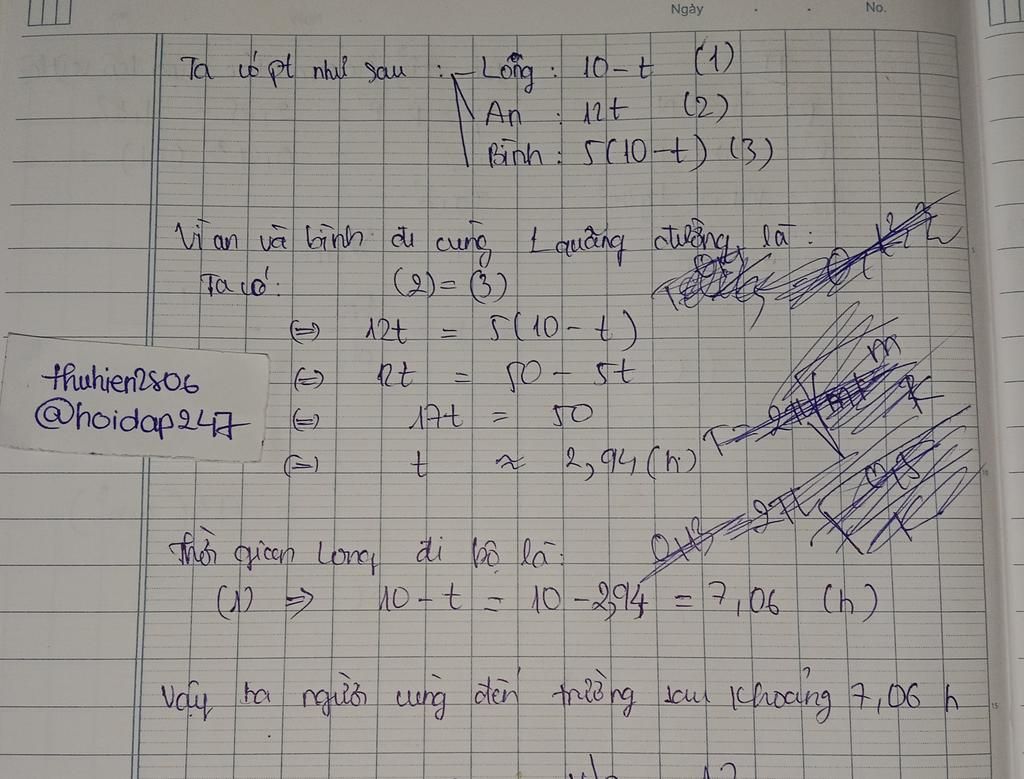 Ngày . . No.
Ta có pt như sau : - Long : 10 - t (1)
An : 12t (2)
Bình : 5(10 - t) (3)
Vì an và bình đi cùng 1 quãng đường là :
Ta có : (2) = (3)
(=) 12t = 5(10 - t)
(=) 12t = 50 - 5t
(=) 17t = 50
(=) t ≈ 2,94 (h)
thuhien2806
@hoidap247
Thời gian Long đi bộ là :
(1) => 10 - t = 10 - 2,94 = 7,06 (h)
Vậy ba người cùng đến trường sau khoảng 7,06 h